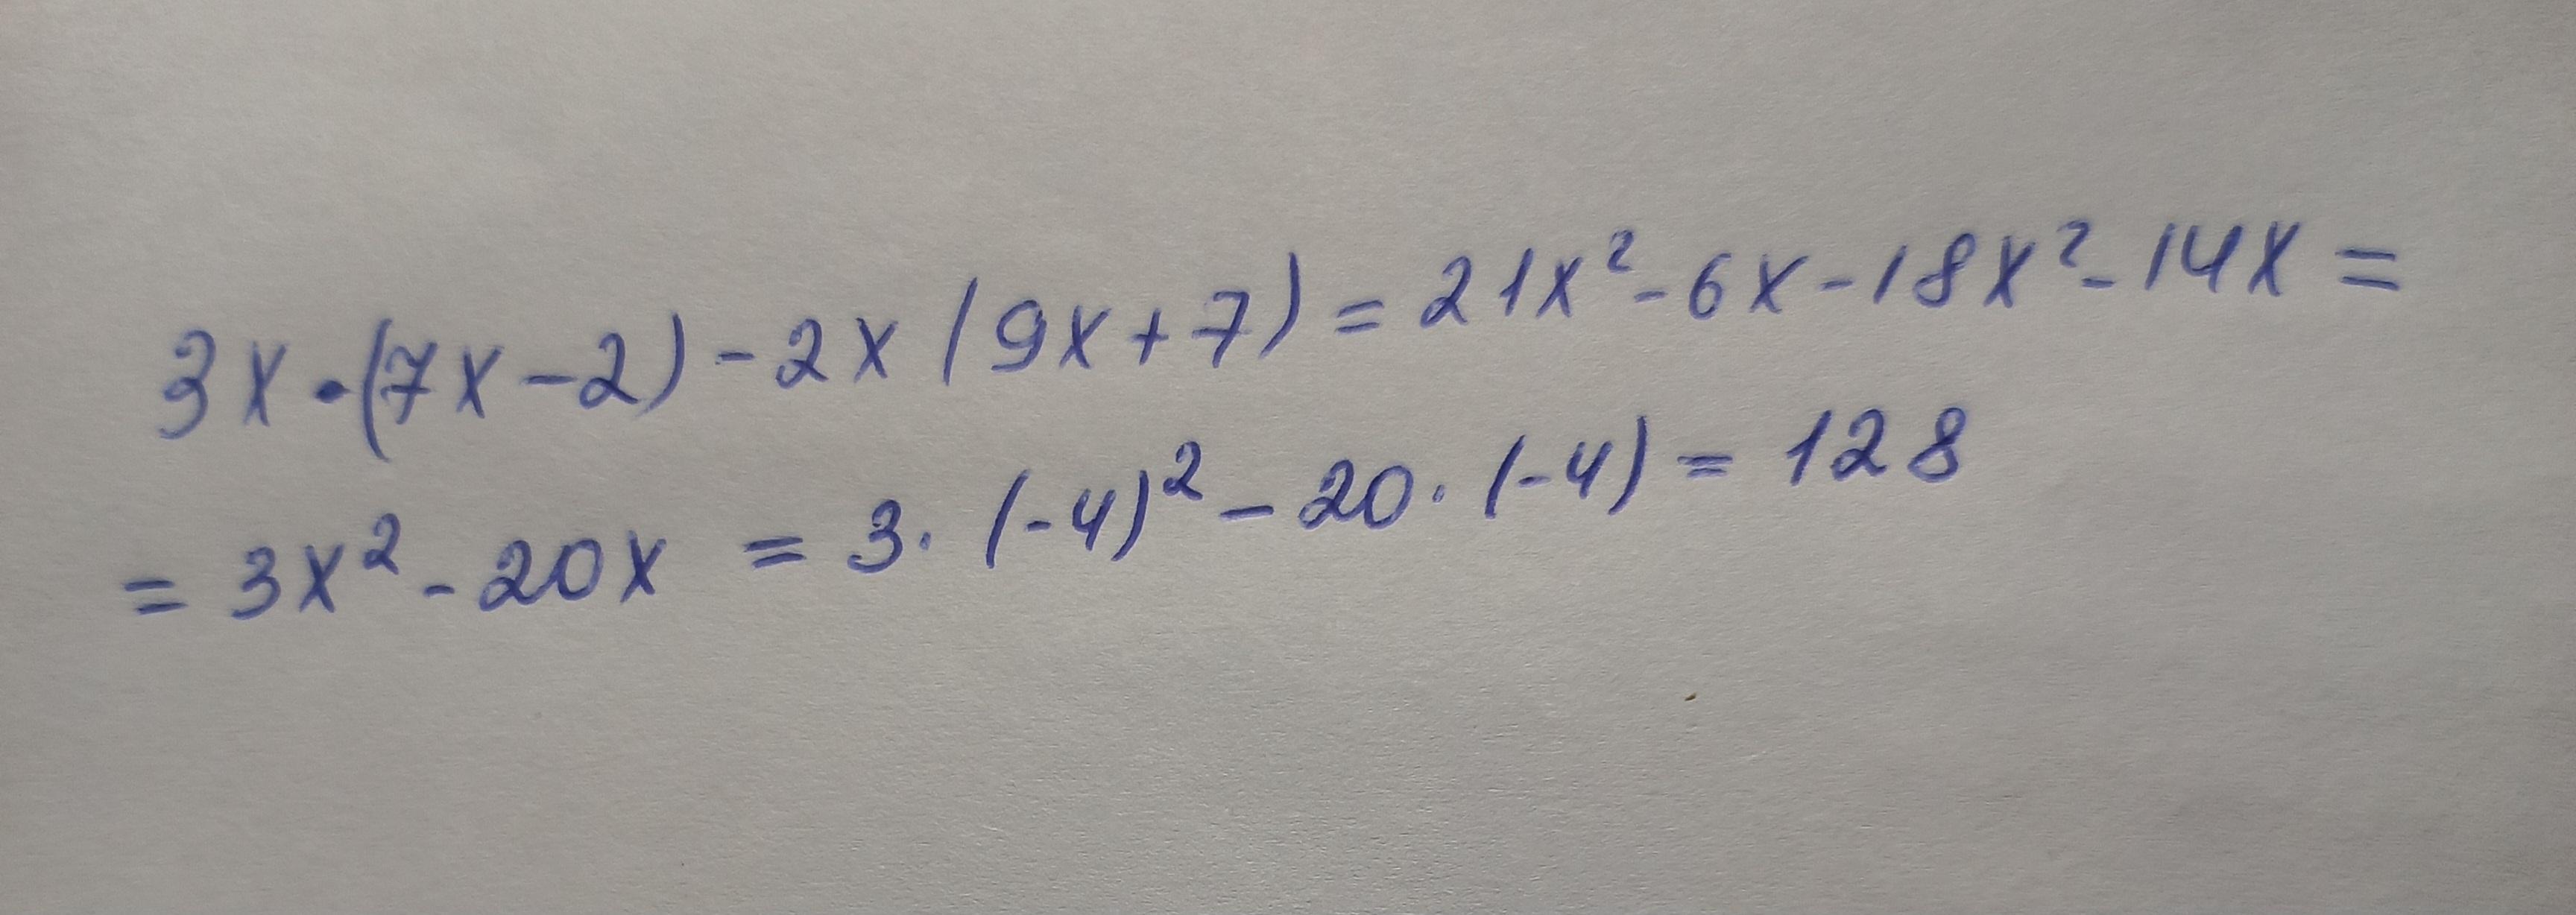 3x·(7x-2)-2x(9x+7)=21x²-6x-18x²-14x=
=3x²-20x=3·(-4)²-20·(-4)=128